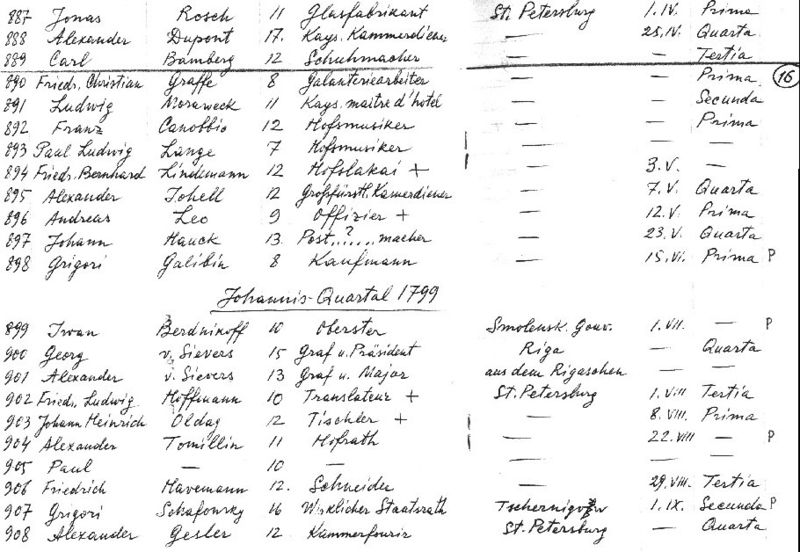 887 Jonas Rosch 11 Glasfabrikant St. Petersburg 1.IV. Prima
888 Alexander Dupont 17. Kays. Kammerdiener — 25.IV. Quarta
889 Carl Bamberg 12 Schuhmacher — — Tertia
890 Friedr. Christian Graffe 8 Galanteriearbeiter — — Prima 16
891 Ludwig Moraweck 11 Kays. maitre d'hotel — — Secunda
892 Franz Canobbio 12 Hofsmusiker — — Prima
893 Paul Ludwig Lange 7 Hofsmusiker — — —
894 Friedr. Bernhard Lindemann 12 Hofslakai + — 3.V. —
895 Alexander Johell 12 Großfürstl. Kamerdiener — 7.V. Quarta
896 Andreas Leo 9 Offizier + — 12.V. Prima
897 Johann Hauck 13. Post..?....macher — 23.V. Quarta
898 Grigori Galibin 8 Kaufmann — 15.VI. Prima P
Johannis-Quartal 1799
899 Iwan Berdnikoff 10 Oberster Smolensk. Gouv. 1.VII. — P
900 Georg v. Sievers 15 Graf u. Präsident Riga — Quarta
901 Alexander v. Sievers 13 Graf u. Major aus dem Rigaschen — —
902 Friedr. Ludwig Hoffmann 10 Translateur + St. Petersburg 1.VIII Tertia
903 Johann Heinrich Oldag 12 Tischler + — 8.VIII. Prima
904 Alexander Tomillin 11 Hofrath — 22.VIII — P
905 Paul — 10 — — — —
906 Friedrich Havemann 12. Schneider — 29.VIII. Tertia
907 Grigori Schafonsky 16 Wirklicher Staatsrath Tschernigow 1.IX. Secunda P
908 Alexander Gesler 12 Kammerfourir St. Petersburg — Quarta